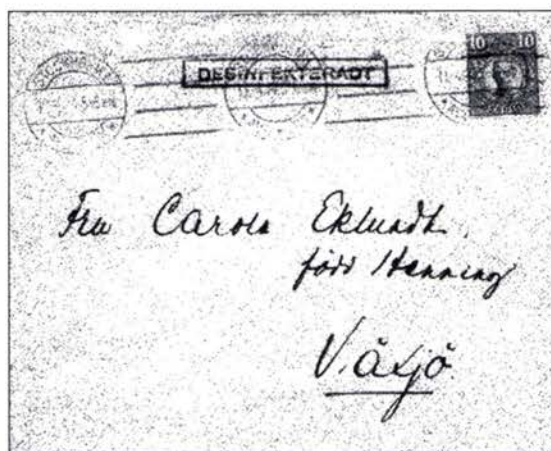 10 10
DESINFEKTERADT
Fru Carola Eklundh
född Henning
Växjö